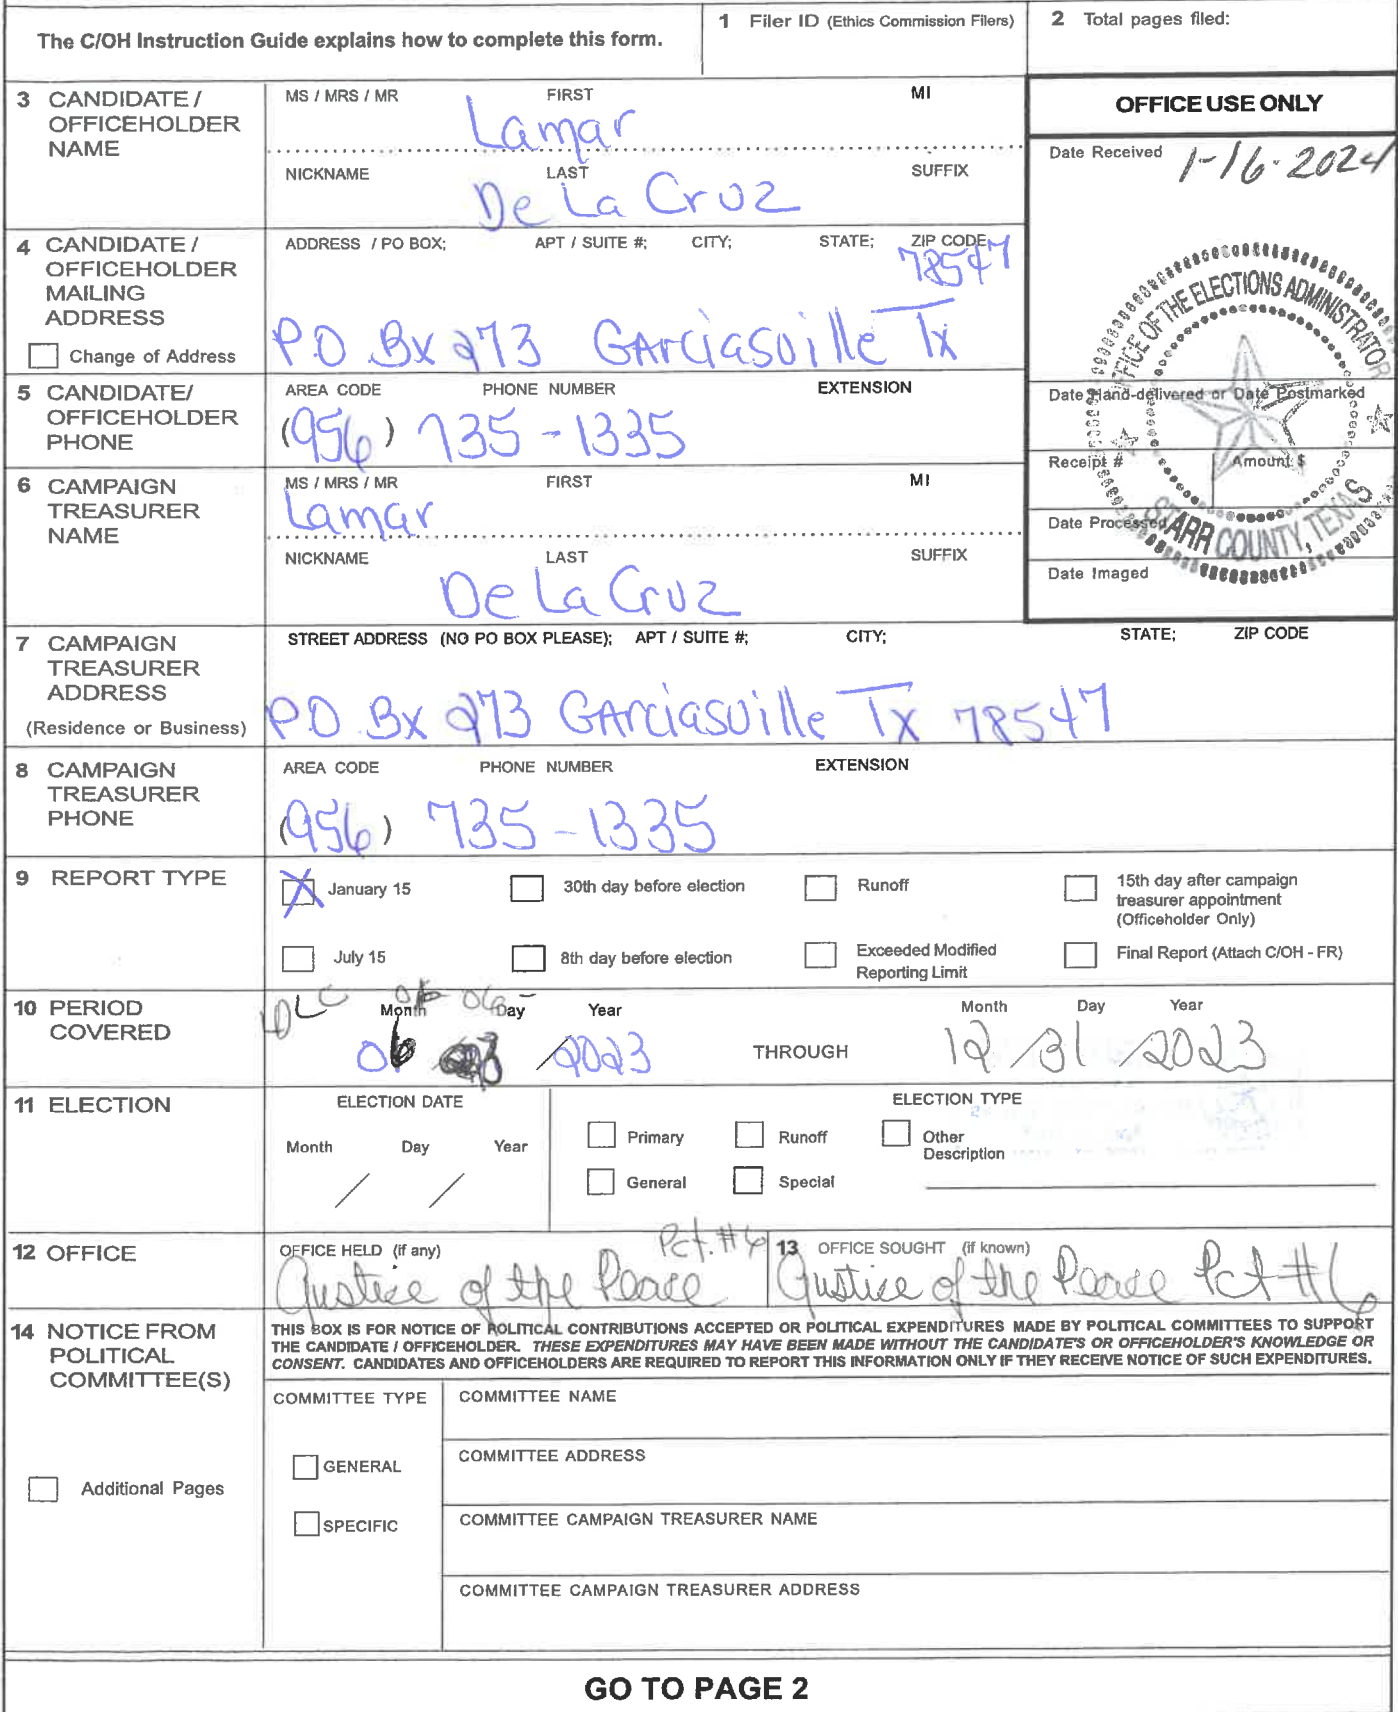 The C/OH Instruction Guide explains how to complete this form.
1 Filer ID (Ethics Commission Filers)
2 Total pages filed:
3 CANDIDATE /
OFFICEHOLDER
NAME
MS / MRS / MR FIRST MI
Lamar
NICKNAME LAST SUFFIX
De La Cruz
OFFICE USE ONLY
Date Received
1-16-2024
4 CANDIDATE /
OFFICEHOLDER
MAILING
ADDRESS
Change of Address
ADDRESS / PO BOX; APT / SUITE #; CITY; STATE; ZIP CODE
78547
P.O Bx 273 Garciasville Tx
OFFICE OF THE ELECTIONS ADMINISTRATOR
STARR COUNTY, TEXAS
Date Hand-delivered or Date Postmarked
Receipt # Amount $
Date Processed
Date Imaged
5 CANDIDATE/
OFFICEHOLDER
PHONE
AREA CODE PHONE NUMBER EXTENSION
(956) 735-1335
6 CAMPAIGN
TREASURER
NAME
MS / MRS / MR FIRST MI
Lamar
NICKNAME LAST SUFFIX
De La Cruz
7 CAMPAIGN
TREASURER
ADDRESS
(Residence or Business)
STREET ADDRESS (NO PO BOX PLEASE); APT / SUITE #; CITY; STATE; ZIP CODE
P.O Bx 273 Garciasville Tx 78547
8 CAMPAIGN
TREASURER
PHONE
AREA CODE PHONE NUMBER EXTENSION
(956) 735-1335
9 REPORT TYPE
X January 15 30th day before election Runoff 15th day after campaign
treasurer appointment
(Officeholder Only)
July 15 8th day before election Exceeded Modified
Reporting Limit
Final Report (Attach C/OH - FR)
10 PERIOD
COVERED
DLC
Month Day Year
06 /2023
THROUGH
Month Day Year
12/31/2023
11 ELECTION
ELECTION DATE
Month Day Year
/ /
ELECTION TYPE
Primary Runoff Other
Description
General Special
12 OFFICE
OFFICE HELD (if any)
Pct. #6
Justice of the Peace
13 OFFICE SOUGHT (if known)
Justice of the Peace Pct #6
14 NOTICE FROM
POLITICAL
COMMITTEE(S)
Additional Pages
THIS BOX IS FOR NOTICE OF POLITICAL CONTRIBUTIONS ACCEPTED OR POLITICAL EXPENDITURES MADE BY POLITICAL COMMITTEES TO SUPPORT
THE CANDIDATE / OFFICEHOLDER. THESE EXPENDITURES MAY HAVE BEEN MADE WITHOUT THE CANDIDATE'S OR OFFICEHOLDER'S KNOWLEDGE OR
CONSENT. CANDIDATES AND OFFICEHOLDERS ARE REQUIRED TO REPORT THIS INFORMATION ONLY IF THEY RECEIVE NOTICE OF SUCH EXPENDITURES.
COMMITTEE TYPE
GENERAL
SPECIFIC
COMMITTEE NAME
COMMITTEE ADDRESS
COMMITTEE CAMPAIGN TREASURER NAME
COMMITTEE CAMPAIGN TREASURER ADDRESS
GO TO PAGE 2